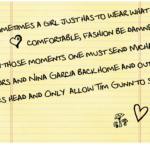 OMETIMES A GIRL JUST HAS TO WEAR WHAT
COMFORTABLE, FASHION BE DAMNE
THOSE MOMENTS ONE MUST SEND MICHA
ORS AND NINA GARCIA BACK HOME AND OUT
ES HEAD AND ONLY ALLOW TIM GUNN TO S